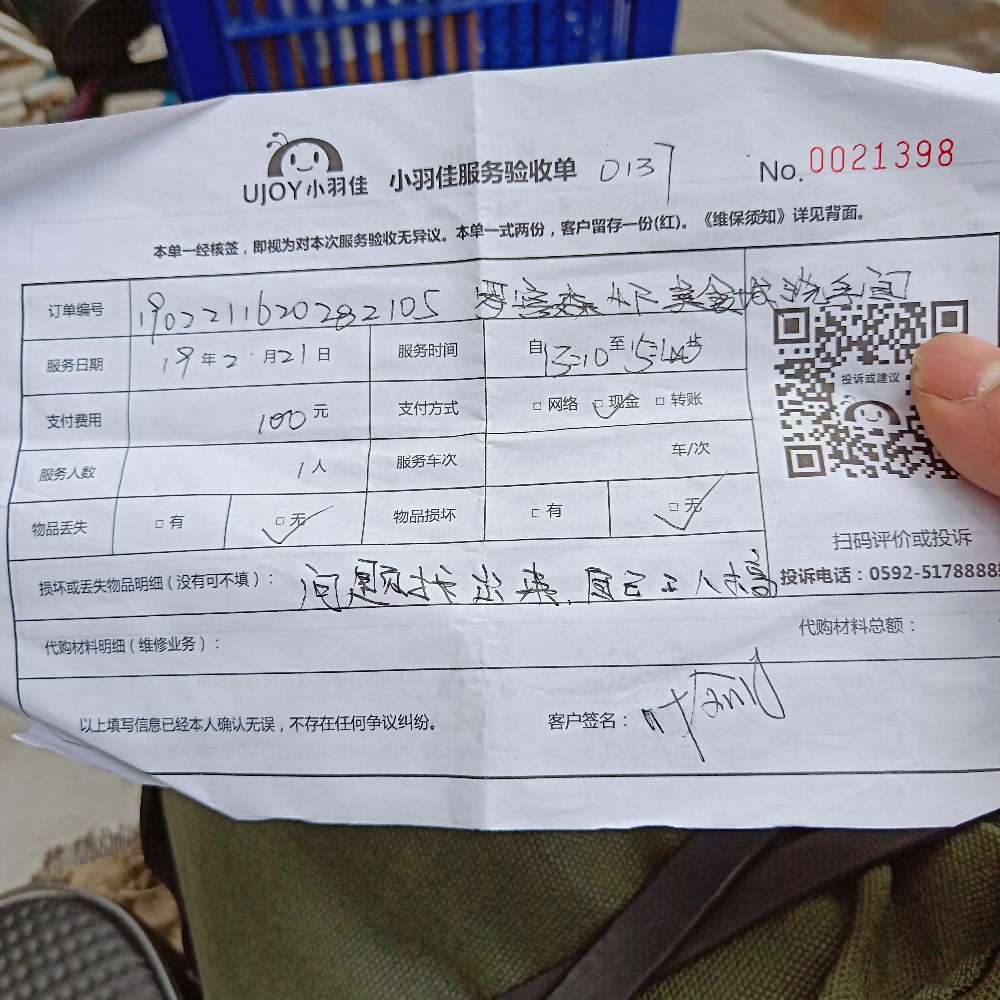 UJOY小羽佳 小羽佳服务验收单 0137 No.0021398
本单一经核签，即视为对本次服务验收无异议。本单一式两份，客户留存一份(红)。《维保须知》详见背面。
订单编号 1902211620282105 洗手间
服务日期 19年2月21日 服务时间 自13:10至15:40
投诉或建议
支付费用 100元 支付方式 □网络 □现金 □转账
服务人数 1人 服务车次 车/次
物品丢失 □有 □无 物品损坏 □有 □无
扫码评价或投诉
损坏或丢失物品明细（没有可不填）： 问题找出来，自己工人搞
投诉电话：0592-5178888
代购材料明细（维修业务）： 代购材料总额：
以上填写信息已经本人确认无误，不存在任何争议纠纷。 客户签名：叶